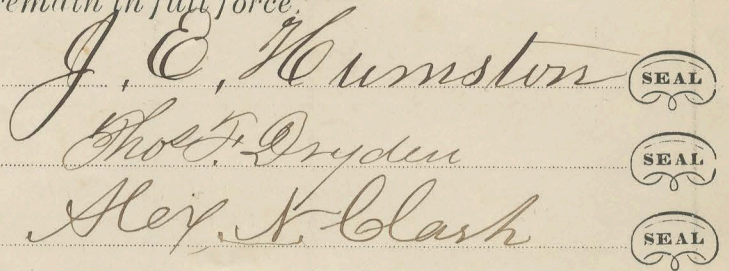 remain in full force.
J. E. Humston SEAL
Thos F. Dryden SEAL
Alex, N Clark SEAL